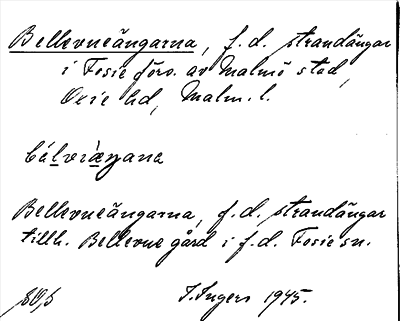 Bellevueängarna, f.d. strandängar
i Fosie förs. av Malmö stad,
Oxie hd, Malm. l.
Bellevueängarna, f.d. strandängar
tillh. Bellevue gård i f.d. Fosie sn.
I. Ingers 1945.